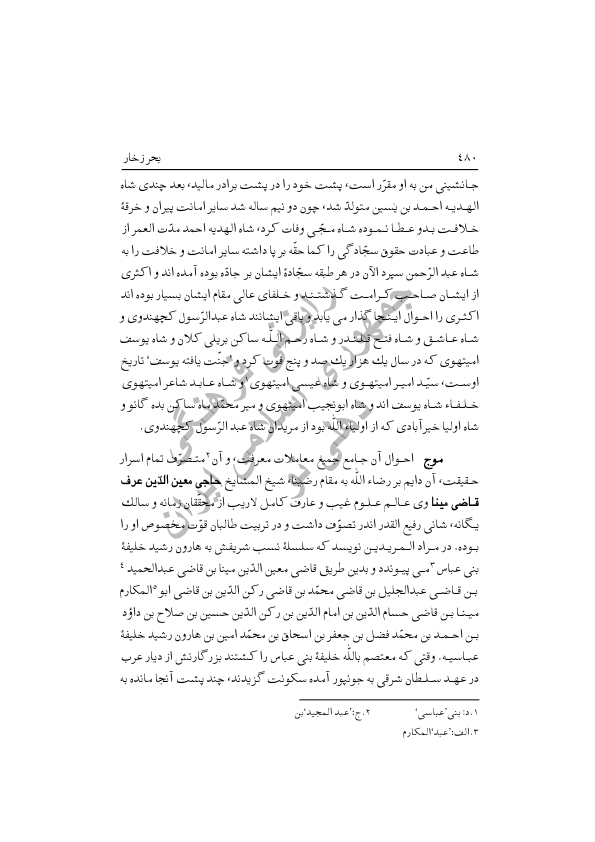 ۴۸۰ بحر زخار
جانشینی من به او مقرّر است، پشت خود را در پشت برادر مالید، بعد چندی شاه
الهدیه احمد بن یٰسین متولدّ شد، چون دو نیم ساله شد سایر امانت پیران و خرقهٔ
خلافت بدو عطا نموده شاه مجّی وفات کرد، شاه الهدیه احمد مدّت العمر از
طاعت و عبادت حقوق سجّادگی را کما حقّه بر پا داشته سایر امانت و خلافت را به
شاه عبد الرّحمن سپرد الآن در هر طبقه سجّادهٔ ایشان بر جادّه بوده آمده اند و اکثری
از ایشان صاحب کرامت گذشتند و خلفای عالی مقام ایشان بسیار بوده اند
اکثری را احوال اینجا گذار می یابد و باقی ایشانند شاه عبدالرّسول کچهندوی و
شاه عاشق و شاه فتح قلندر و شاه رحم اللّه ساکن بریلی کلان و شاه یوسف
امیتهوی که در سال یك هزار یك صد و پنج فوت کرد و ’جنّت یافته یوسف‘ تاریخ
اوست، سیّد امیر امیتهوی و شاه عیسی امیتهوی ٗ و شاه عابد شاعر امیتهوی
خلفاء شاه یوسف اند و شاه ابونجیب امیتهوی و میر محمّد ماه ساکن بده گانو و
شاه اولیا خیرآبادی که از اولیاء اللّه بود از مریدان شاه عبد الرّسول کچهندوی.
موج احوال آن جامع جمیع معاملات معرفت، و آن۲ متصرّف تمام اسرار
حقیقت، آن دایم بر رضاء اللّه به مقام رضینا، شیخ المشایخ حاجی معین الدّین عرف
قاضی مینا وی عالم علوم غیب و عارف کامل لاریب از محققان زمانه و سالك
یگانه، شانی رفیع القدر اندر تصوّف داشت و در تربیت طالبان قوّت مخصوص او را
بوده. در مراد المریدین نویسد که سلسلهٔ نسب شریفش به هارون رشید خلیفهٔ
بنی عباس۳ می پیوندد و بدین طریق قاضی معین الدّین مینا بن قاضی عبدالحمید ۴
بن قاضی عبدالجلیل بن قاضی محمّد بن قاضی رکن الدّین بن قاضی ابو۵المکارم
مینا بن قاضی حسام الدّین بن امام الدّین بن رکن الدّین حسین بن صلاح بن داؤد
بن احمد بن محمّد فضل بن جعفر بن اسحاق بن محمّد امین بن هارون رشید خلیفهٔ
عباسیه. وقتی که معتصم باللّه خلیفهٔ بنی عباس را کشتند بزرگارنش از دیار عرب
در عهد سلطان شرقی به جونپور آمده سکونت گزیدند، چند پشت آنجا مانده به
۱.د: بنی’عباسی‘ ۲.ج:’عبد المجید‘بن
۳.الف:’عبد‘المکارم